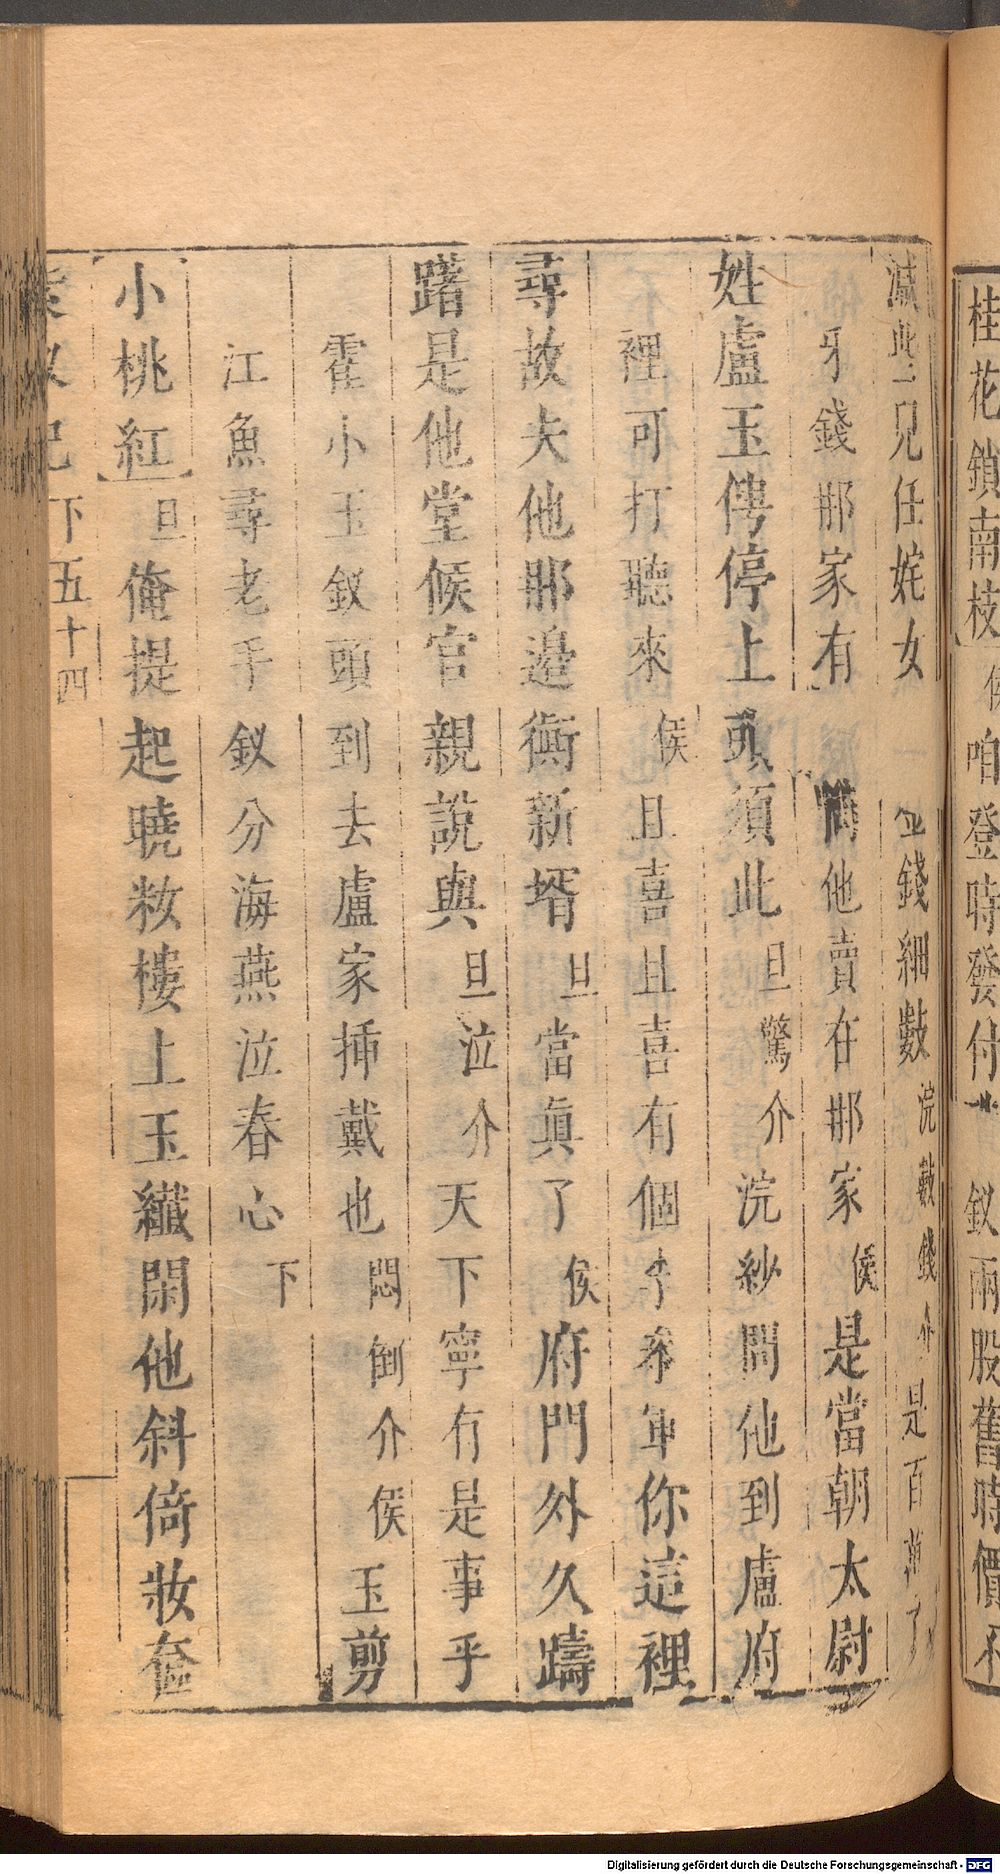 桂花鎖南枝 侯 咱登時發付 釵兩股舊時價不
減些兒任姹女 錢細數 浣數錢介 是百萬了
牙錢那家有 問他賣在那家 侯 是當朝太尉
姓盧玉俜停上頭須此 旦驚介 浣紗問他到盧府
裡可打聽來 侯 且喜且喜有個李參軍你這裡
尋故夫他那邊衠新壻 旦 當眞了 侯 府門外久躊
躇是他堂候官親說與 旦泣介 天下寧有是事乎
霍小玉釵頭到去盧家插戴也 悶倒介 侯 玉剪
江魚尋老手釵分海燕泣春心 下
小桃紅 旦 俺提起曉妝樓上玉纖閑他斜倚妝奩
紫釵記 下 五十四
Digitalisierung gefördert durch die Deutsche Forschungsgemeinschaft - DFG